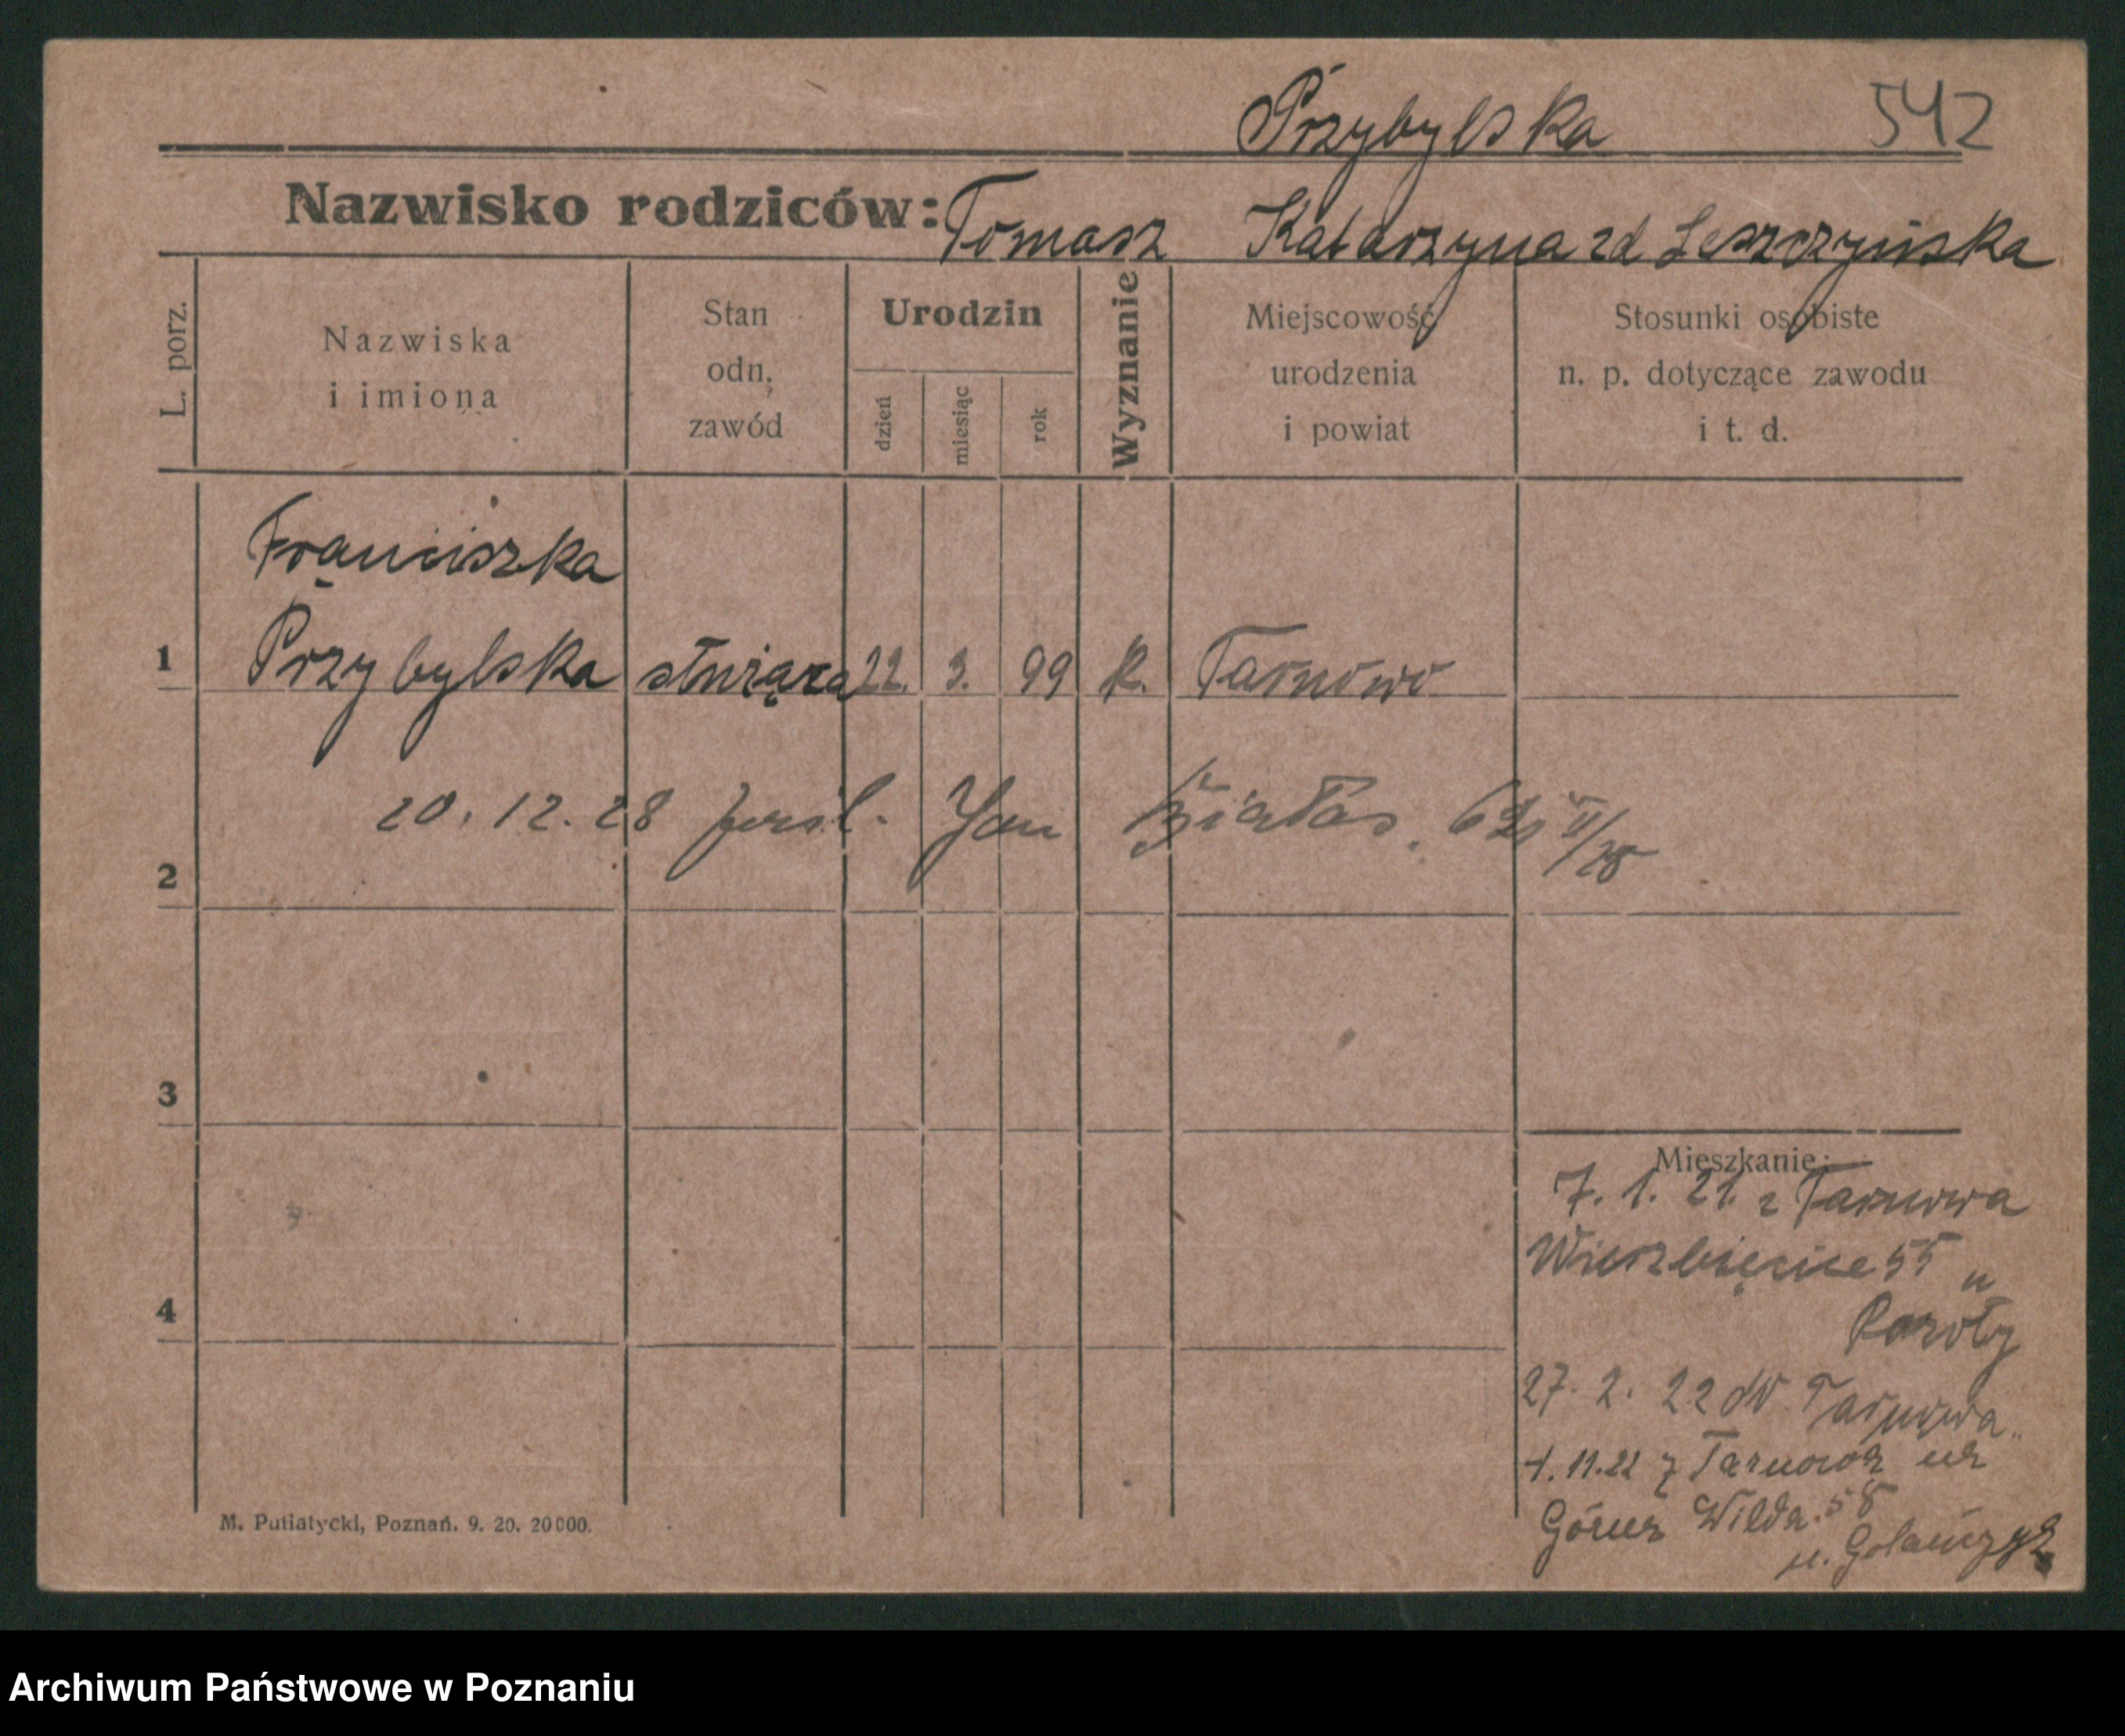 Przybylska 542
Nazwisko rodziców: Tomasz Katarzyna zd Leszczyńska
L. porz.
Nazwiska
i imiona
Stan
odn.
zawód
Urodzin
dzień
miesiąc
rok
Wyznanie
Miejscowość
urodzenia
i powiat
Stosunki osobiste
n. p. dotyczące zawodu
i t. d.
Franciszka
1 Przybylska służąca 22. 3. 99 k. Tarnowo
20.12.28 Jan Białas.
2
3
4
Mieszkanie:
7. 1. 21. z Tarnowa
Wierzbięcice 55 u
27. 2. 22 do Tarnowa
4.11.22 z Tarnowa na
Górna Wilda. 58
u.
M. Putiatycki, Poznań. 9. 20. 20000.
Archiwum Państwowe w Poznaniu